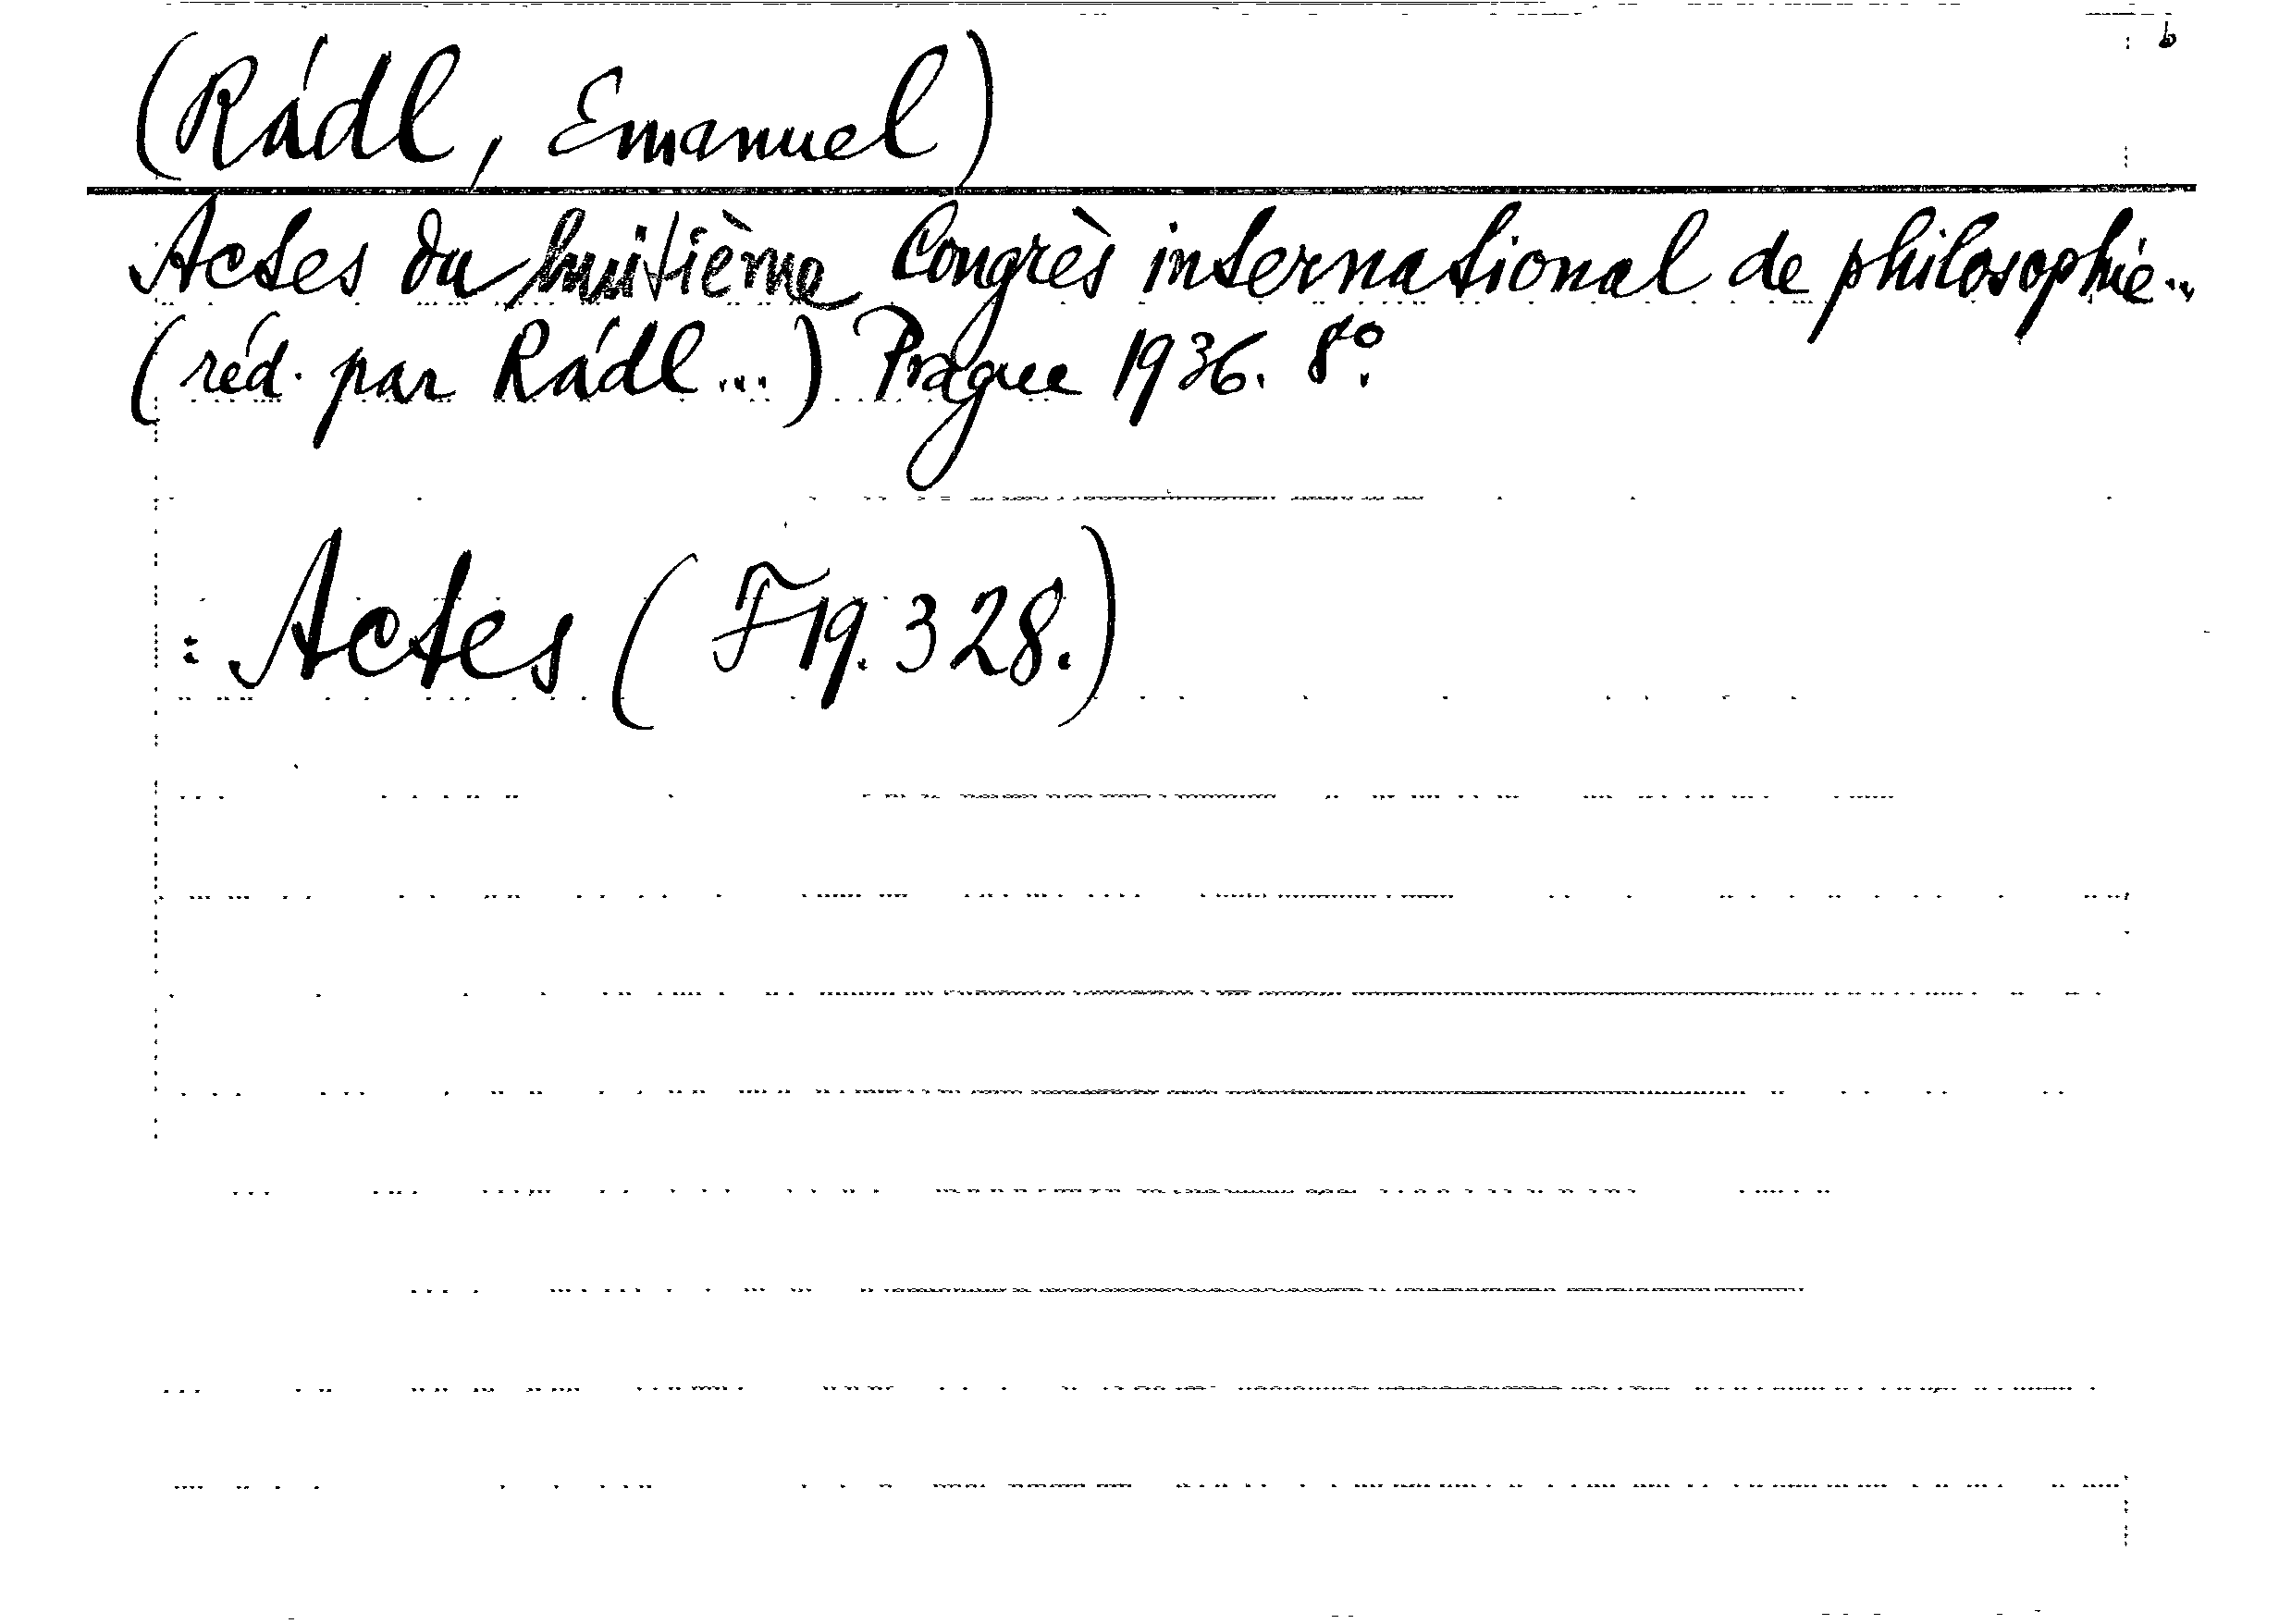 b
(Rádl, Emanuel)
Actes du huitième Congrès international de philosophie...
(réd. par Rádl...) Prague 1936. 8º.
: Actes (F 19.328.)